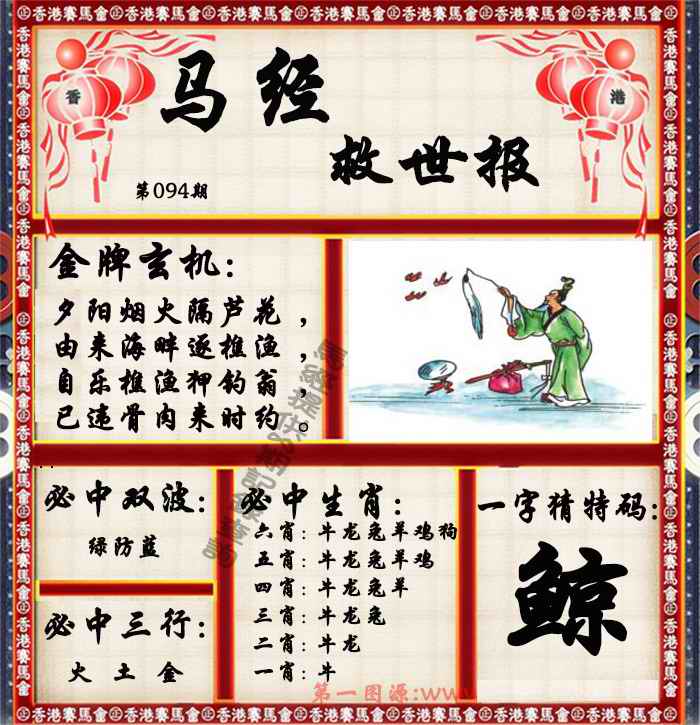 香港賽馬會㊣香港賽馬會㊣香港賽馬會㊣香港賽馬會㊣香港賽馬會㊣香港賽馬會
香
港
马经
救世报
第094期
金牌玄机:
夕阳烟火隔芦花,
由来海畔逐樵渔,
自乐樵渔狎钓翁,
已违骨肉来时约。
必中双波:
绿防蓝
必中三行:
火 土 金
必中生肖:
六肖:牛龙兔羊鸡狗
五肖:牛龙兔羊鸡
四肖:牛龙兔羊
三肖:牛龙兔
二肖:牛龙
一肖:牛
一字猜特码:
鲸
第一图源:www